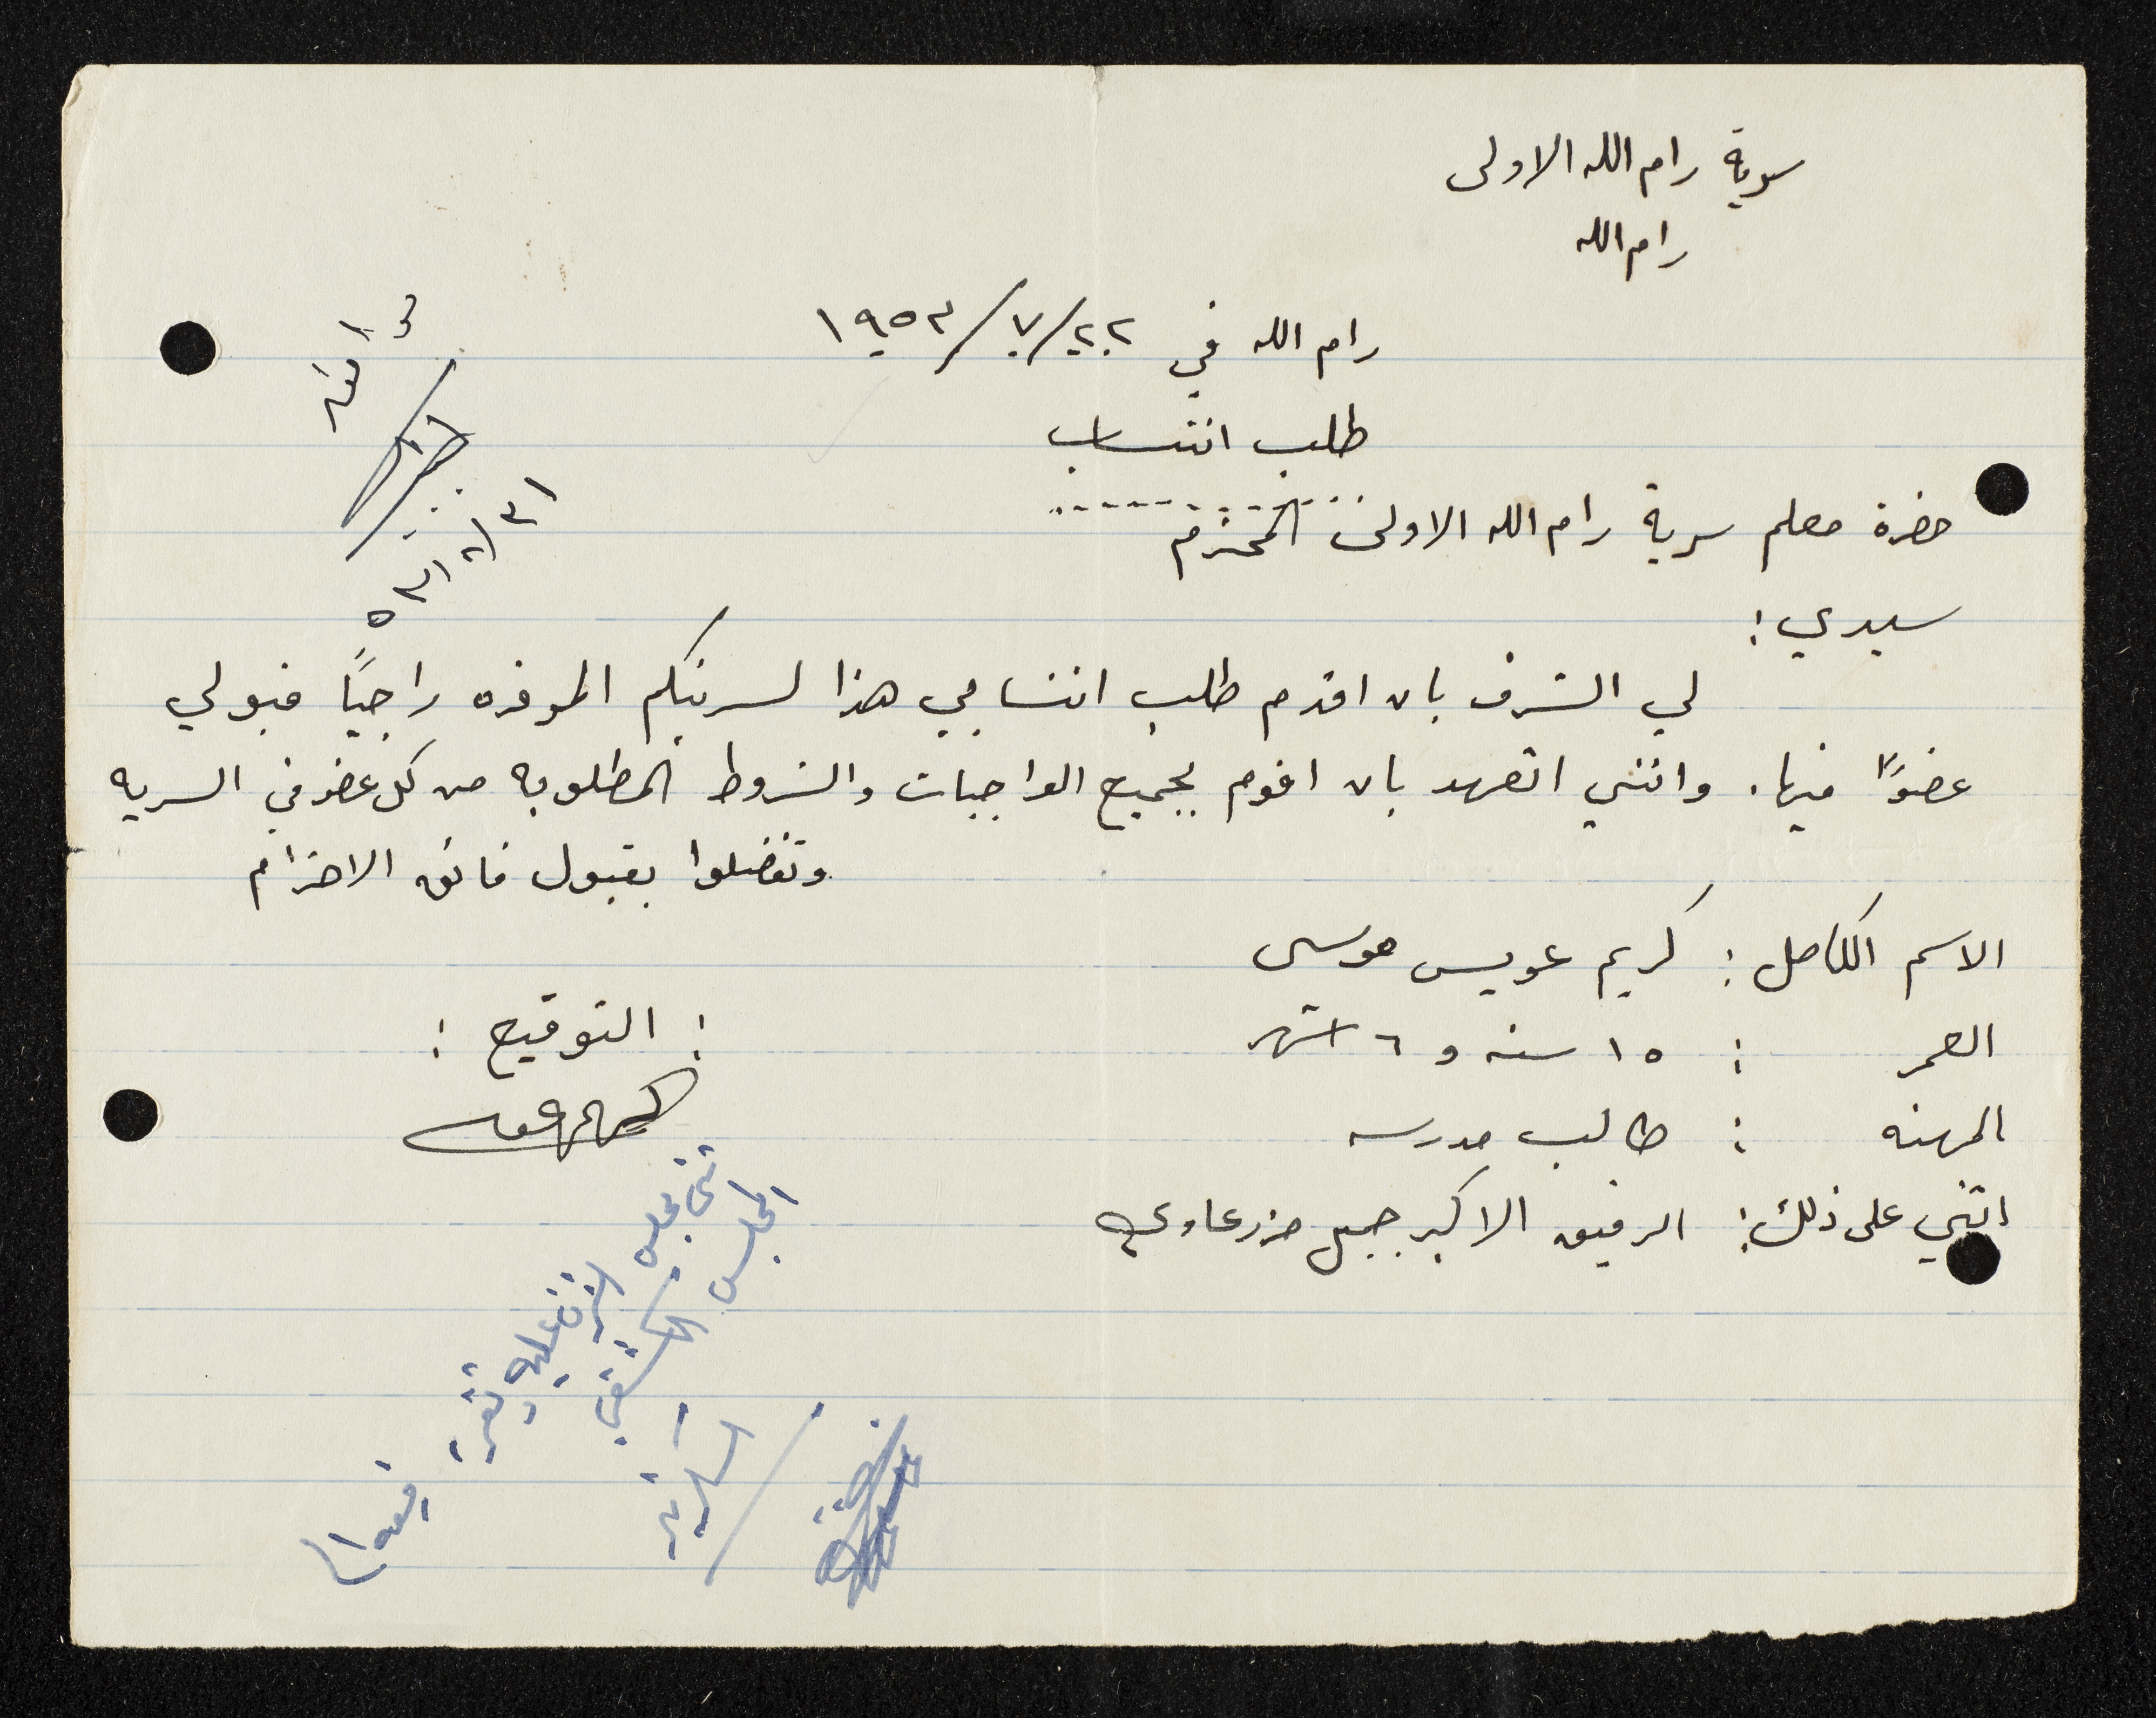 سرية رام الله الاولى
رام الله
رام الله في ٢٢/٧/١٩٥٣
طلب انتساب
حضرة معلم سرية رام الله الاولى المحترم
سيدي :
لي الشرف بان اقدم طلب انتسابي هذا لسريتكم الموقره راجيًا قبولي
عضوًا فيها. وانني اتعهد بان اقوم بجميع الواجبات والشروط المطلوبه من كل عضو في السريه
وتفضلوا بقبول فائق الاحترام
الاسم الكامل : كريم عويس موسى
العمر : ١٥ سنه و ٦ اشهر
: التوقيع :
المهنه : طالب مدرسه
اثني على ذلك : الرفيق الاكبر جميل مزرعاوي
اوافق
٣١/٧/٥٣
ثنى مجلس الشرف عليه وتقرر
المجلس الكشفي